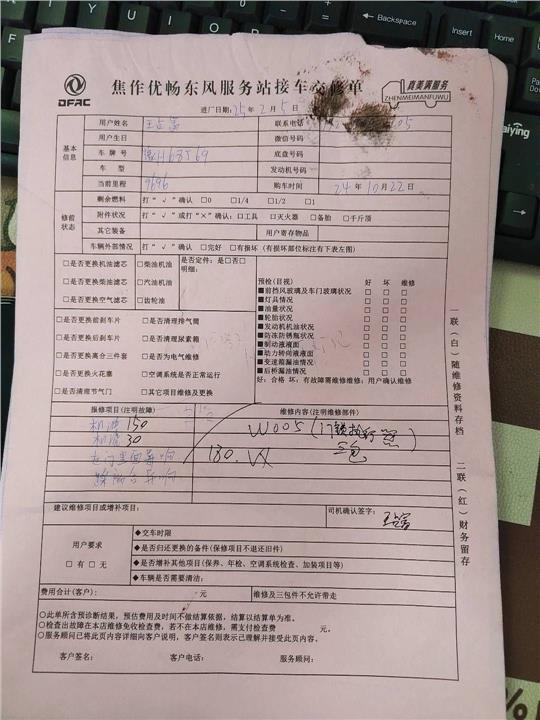 焦作优畅东风服务站接车交修单
DFAC
真美满服务
ZHENMEIMANFUWU
进厂日期:25年2月5日
基本信息
用户姓名
联系电话
用户生日
微信号码
车牌号 豫H68J69
底盘号码
车型
发动机号码
当前里程 9696
购车时间 24年10月22日
修前状态
剩余燃料 打“√”确认 □0 □1/4 □1/2 □1
附件状况 打“√”或打“×”确认:□工具 □灭火器 □备胎 □千斤顶
其它装备 用户寄存物品
车辆外部情况 打“√”确认 □完好 □有损坏(有损坏部位标注有下表左图)
□是否更换机油滤芯 □柴油机油
□是否更换柴油滤芯 □汽油机油
□是否更换空气滤芯 □齿轮油
是否定件:是□否□
明细:
□是否更换前刹车片 □是否清理排气筒
□是否更换后刹车片 □是否清理尿素箱
□是否更换离合三件套 □是否为电气维修
□是否更换火花塞 □空调系统是否正常运行
□是否清理节气门 □其它项目维修及更换
预检(目视) 好 坏 维修
■前挡风玻璃及车门玻璃状况 □ □ □
■灯具情况 □ □ □
■油量状况 □ □ □
■轮胎状况 □ □ □
■发动机机油状况 □ □ □
■防冻防锈瓶状况 □ □ □
■制动液液面 □ □ □
■助力转向液液面 □ □ □
■变速箱漏油情况 □ □ □
■后桥漏油情况 □ □ □
好:合格 坏:有故障需维修维修:用户确认维修
报修项目(注明故障)
维修内容(注明维修部件)
机滤 150
30
异响
异响
180.
W005(
三包
建议维修项目或增补项目:
司机确认签字:
用户要求
□有 □无
◆交车时限
◆是否归还更换的备件(保修项目不退还旧件)
◆是否增补其他项目(保养、年检、空调系统检查、加装项目等)
◆车辆是否需要清洁:
费用合计(客户): 元
维修及三包件不允许带走
○此单所含预诊断结果,预估费用及时间不做结算依据,结算以结算单为准。
○检查出故障在本店维修免收检查费,若不在本店维修,需支付检查费 元。
○服务顾问已将此页内容详细向客户说明,客户签名则表示已理解并接受此页内容。
客户签名: 客户电话: 服务顾问:
一联(白)随维修资料存档 二联(红)财务留存
Backspace